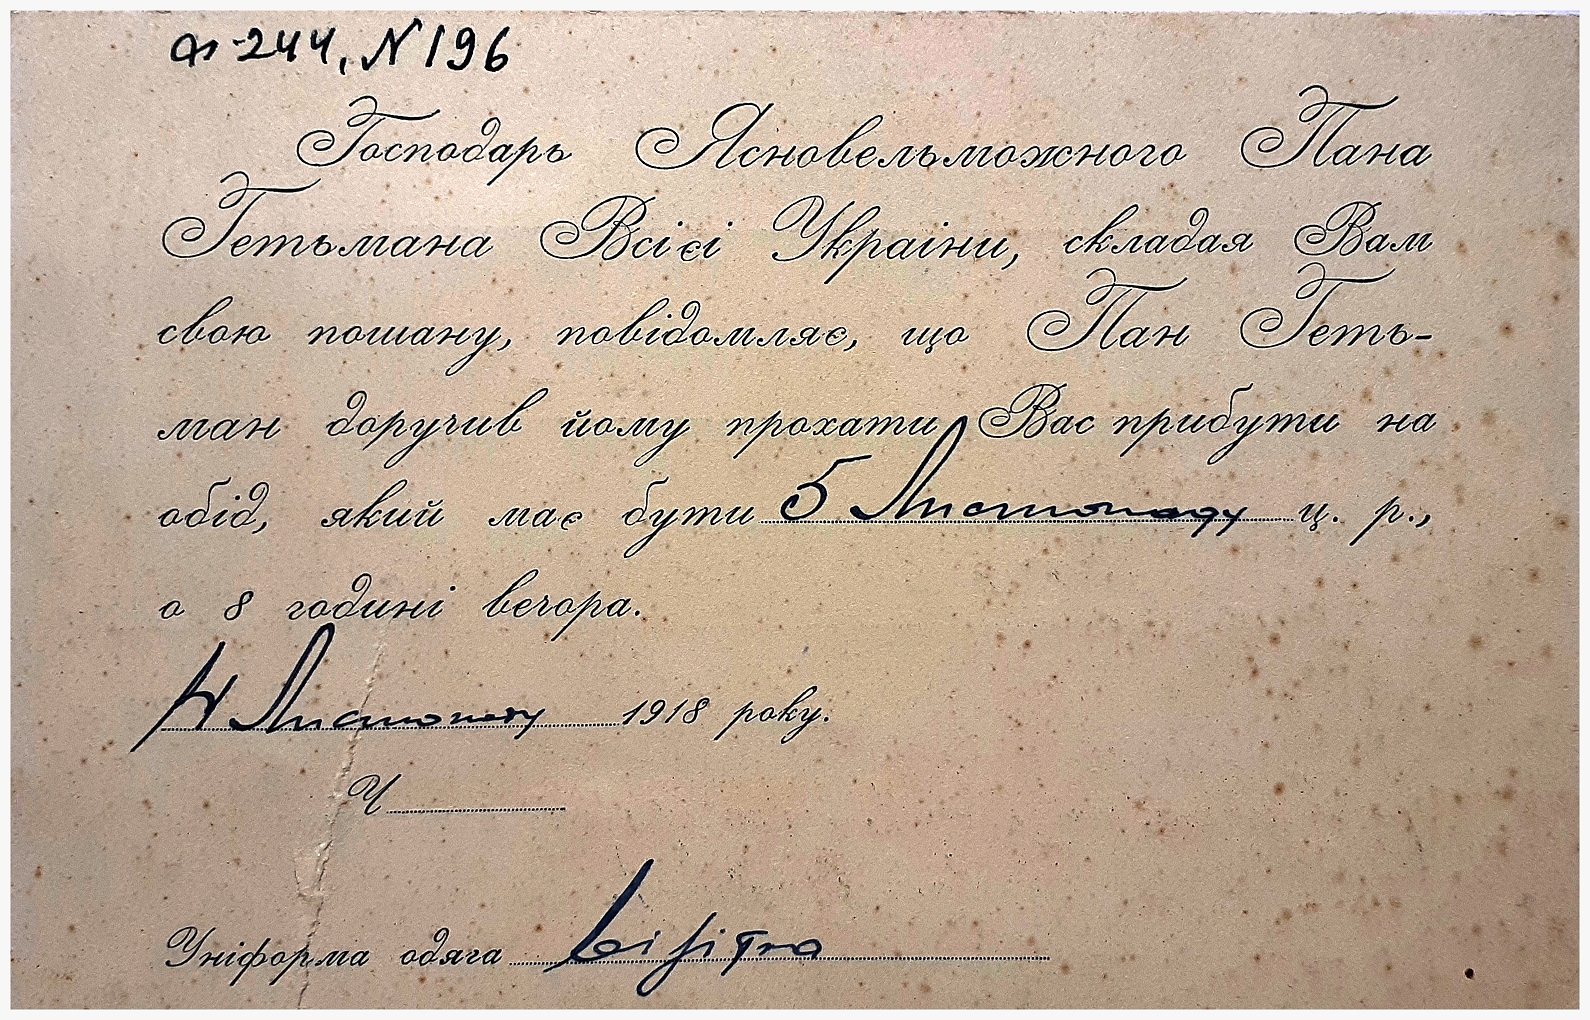 ф-244, N196
Господарь Ясновельможного Пана
Гетьмана Всієї Украіни, складая Вам
свою пошану, повідомляє, що Пан Геть-
ман доручив йому прохати Вас прибути на
обід, який має бути 5 Листопаду ц. р.,
о 8 годині вечора.
4 Листопаду 1918 року.
Ч
Уніформа одяга візітна